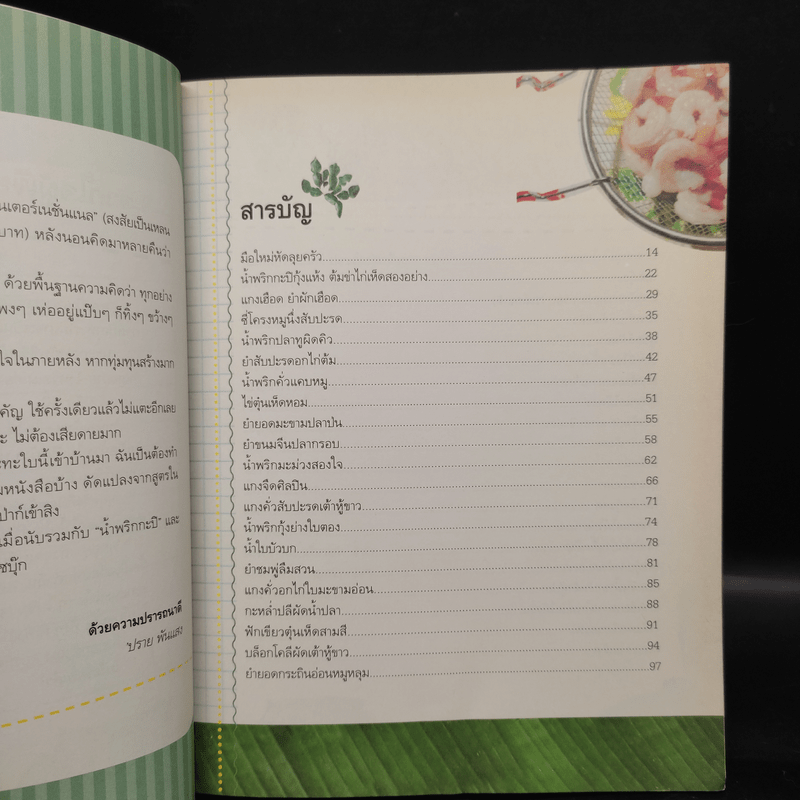 นเตอร์เนชั่นแนล" (สงสัยเป็นเหลน
บาท) หลังนอนคิดมาหลายคืนว่า
ด้วยพื้นฐานความคิดว่า ทุกอย่าง
พงๆ เห่ออยู่แป๊บๆ ก็ทิ้งๆ ขว้างๆ
ใจในภายหลัง หากทุ่มทุนสร้างมาก
คัญ ใช้ครั้งเดียวแล้วไม่แตะอีกเลย
ะ ไม่ต้องเสียดายมาก
ะทะใบนี้เข้าบ้านมา ฉันเป็นต้องทำ
มหนังสือบ้าง ดัดแปลงจากสูตรใน
ป่าก็เข้าสิง
เมื่อนับรวมกับ "น้ำพริกกะปิ" และ
ซบุ๊ก
ด้วยความปรารถนาดี
'ปราย พันแสง
สารบัญ
มือใหม่หัดลุยครัว 14
น้ำพริกกะปิกุ้งแห้ง ต้มข่าไก่เห็ดสองอย่าง 22
แกงเฮือด ยำผักเฮือด 29
ซี่โครงหมูนึ่งสับปะรด 35
น้ำพริกปลาทูผิดคิว 38
ยำสับปะรดอกไก่ต้ม 42
น้ำพริกคั่วแคบหมู 47
ไข่ตุ๋นเห็ดหอม 51
ยำยอดมะขามปลาป่น 55
ยำขนมจีนปลากรอบ 58
น้ำพริกมะม่วงสองใจ 62
แกงจืดศิลปิน 66
แกงคั่วสับปะรดเต้าหู้ขาว 71
น้ำพริกกุ้งย่างใบตอง 74
น้ำใบบัวบก 78
ยำชมพู่ลืมสวน 81
แกงคั่วอกไก่ใบมะขามอ่อน 85
กะหล่ำปลีผัดน้ำปลา 88
ฟักเขียวตุ๋นเห็ดสามสี 91
บล็อกโคลีผัดเต้าหู้ขาว 94
ยำยอดกระถินอ่อนหมูหลุม 97